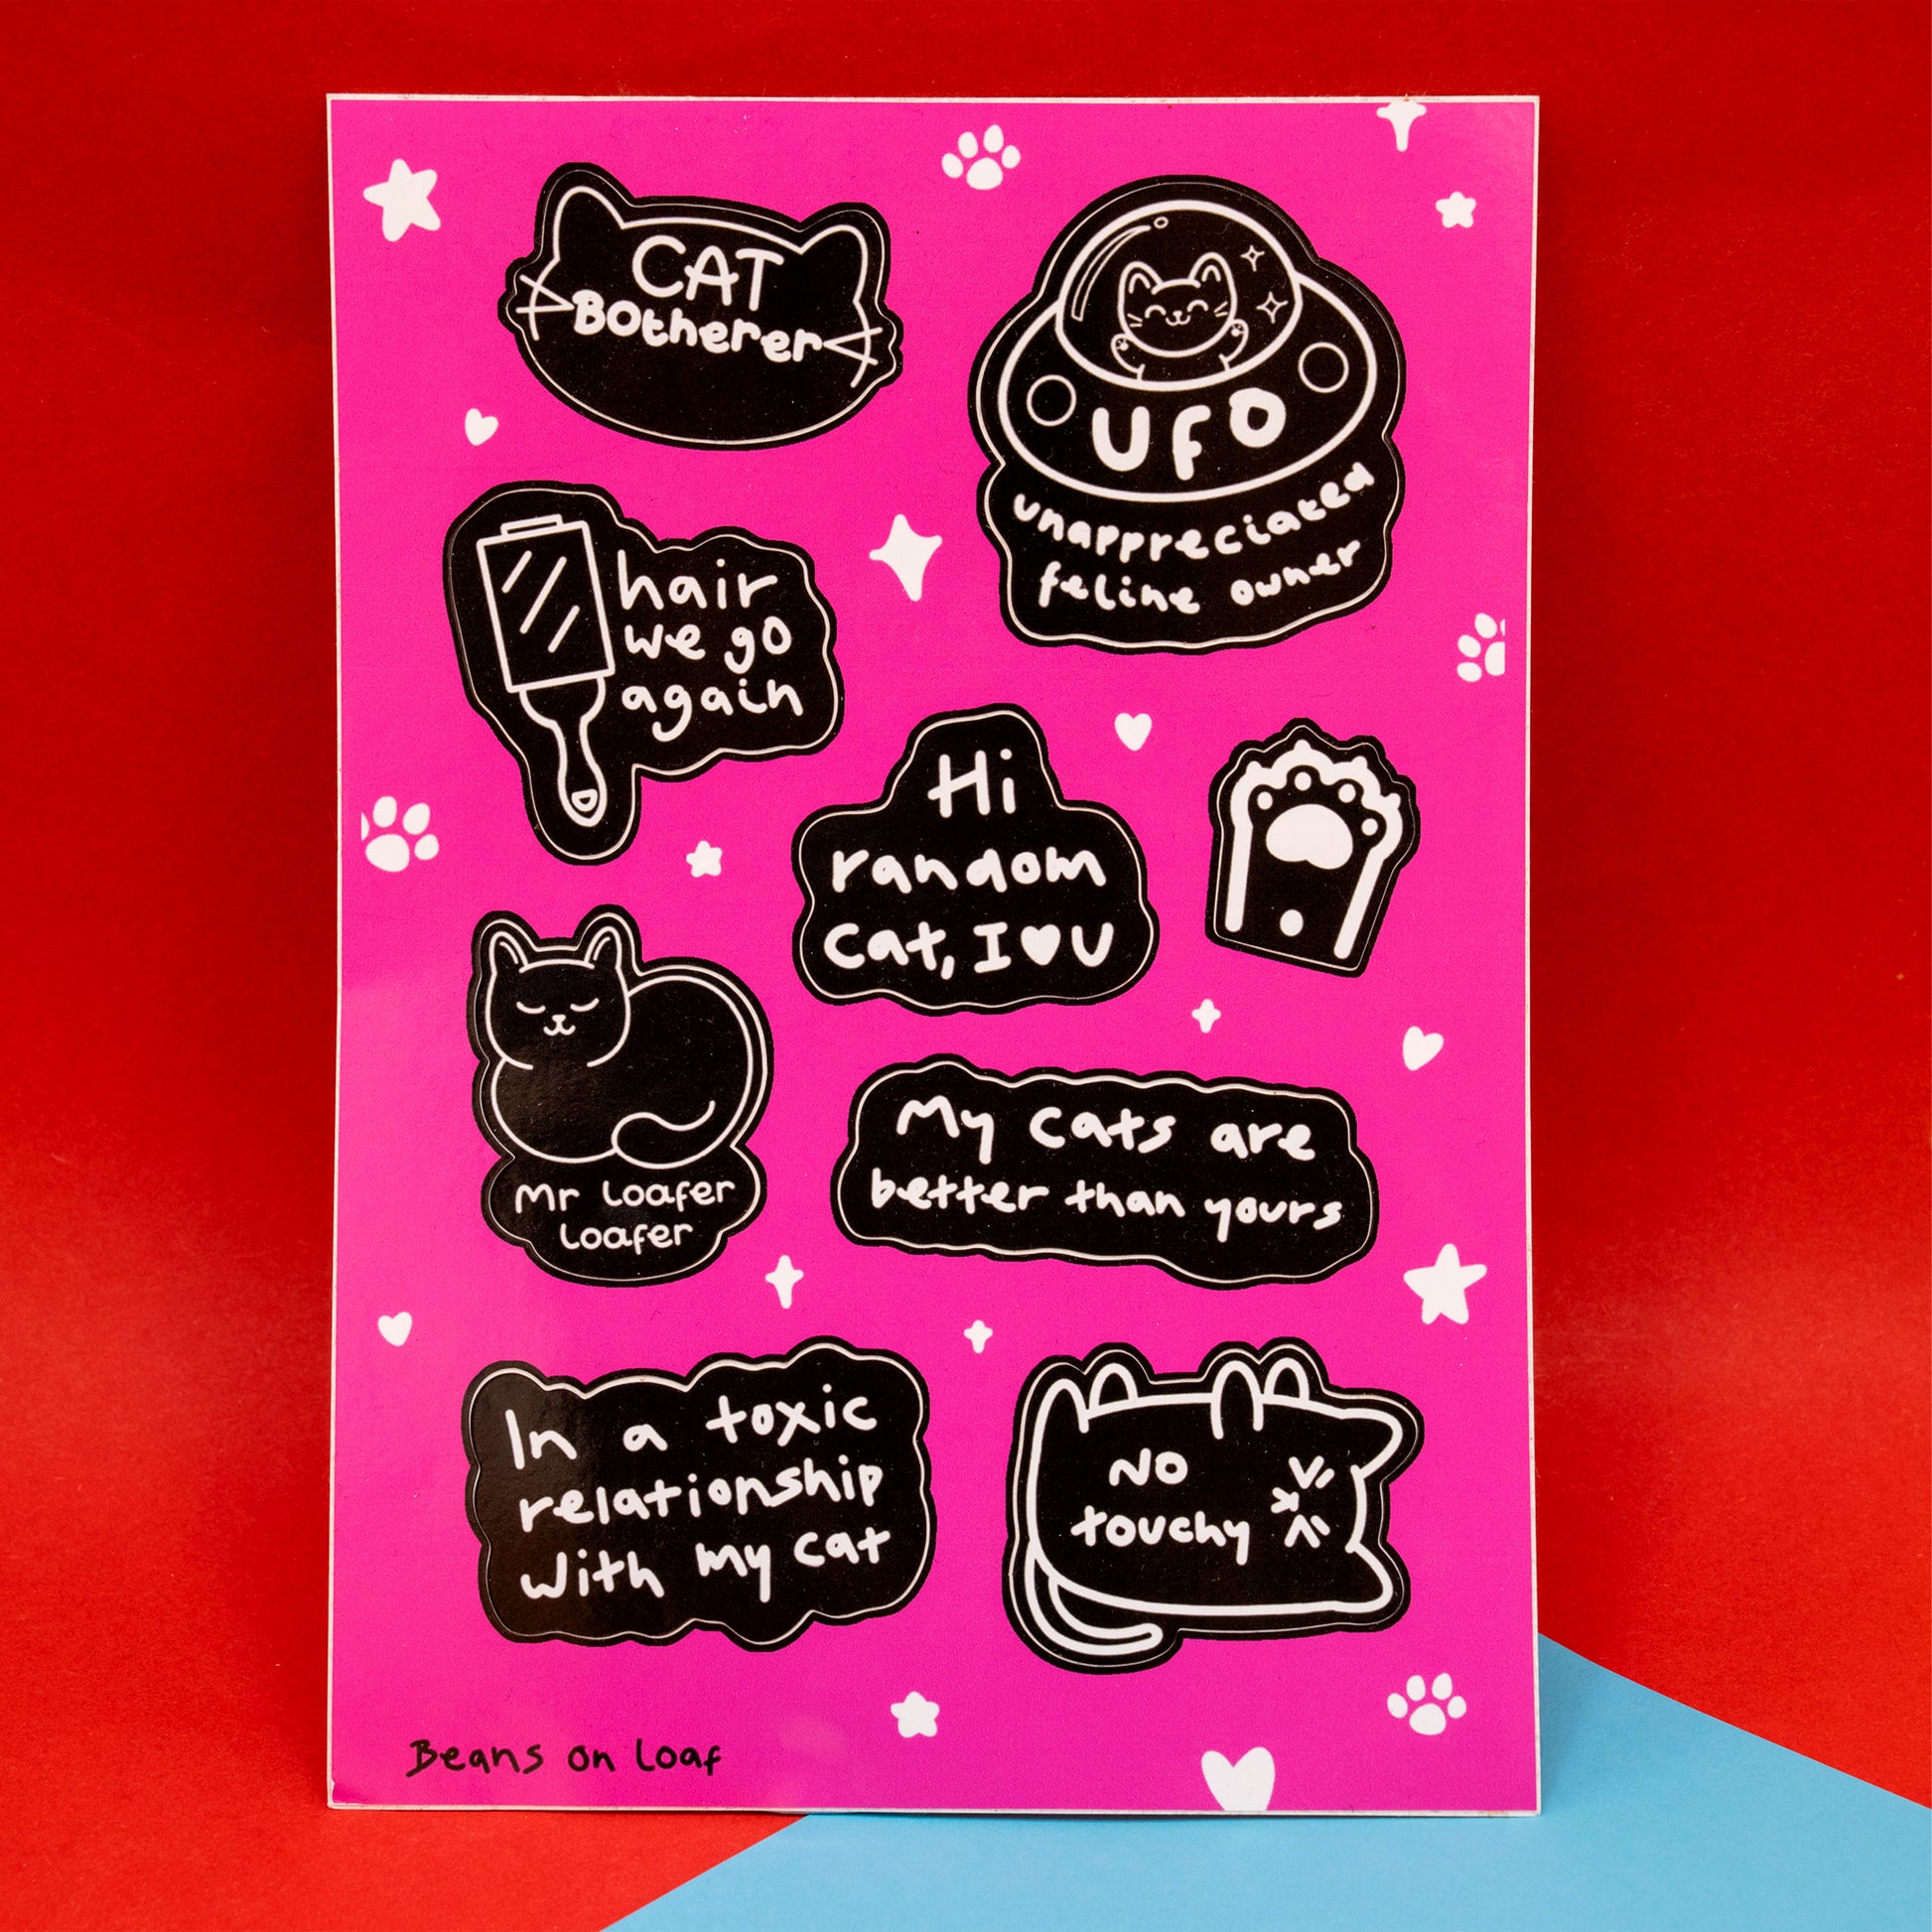 CAT
Botherer
UFO
unappreciated
feline owner
hair
we go
again
Hi
random
Cat, I♥U
Mr Loafer
Loafer
My cats are
better than yours
In a toxic
relationship
with my cat
No
touchy
Beans on Loaf